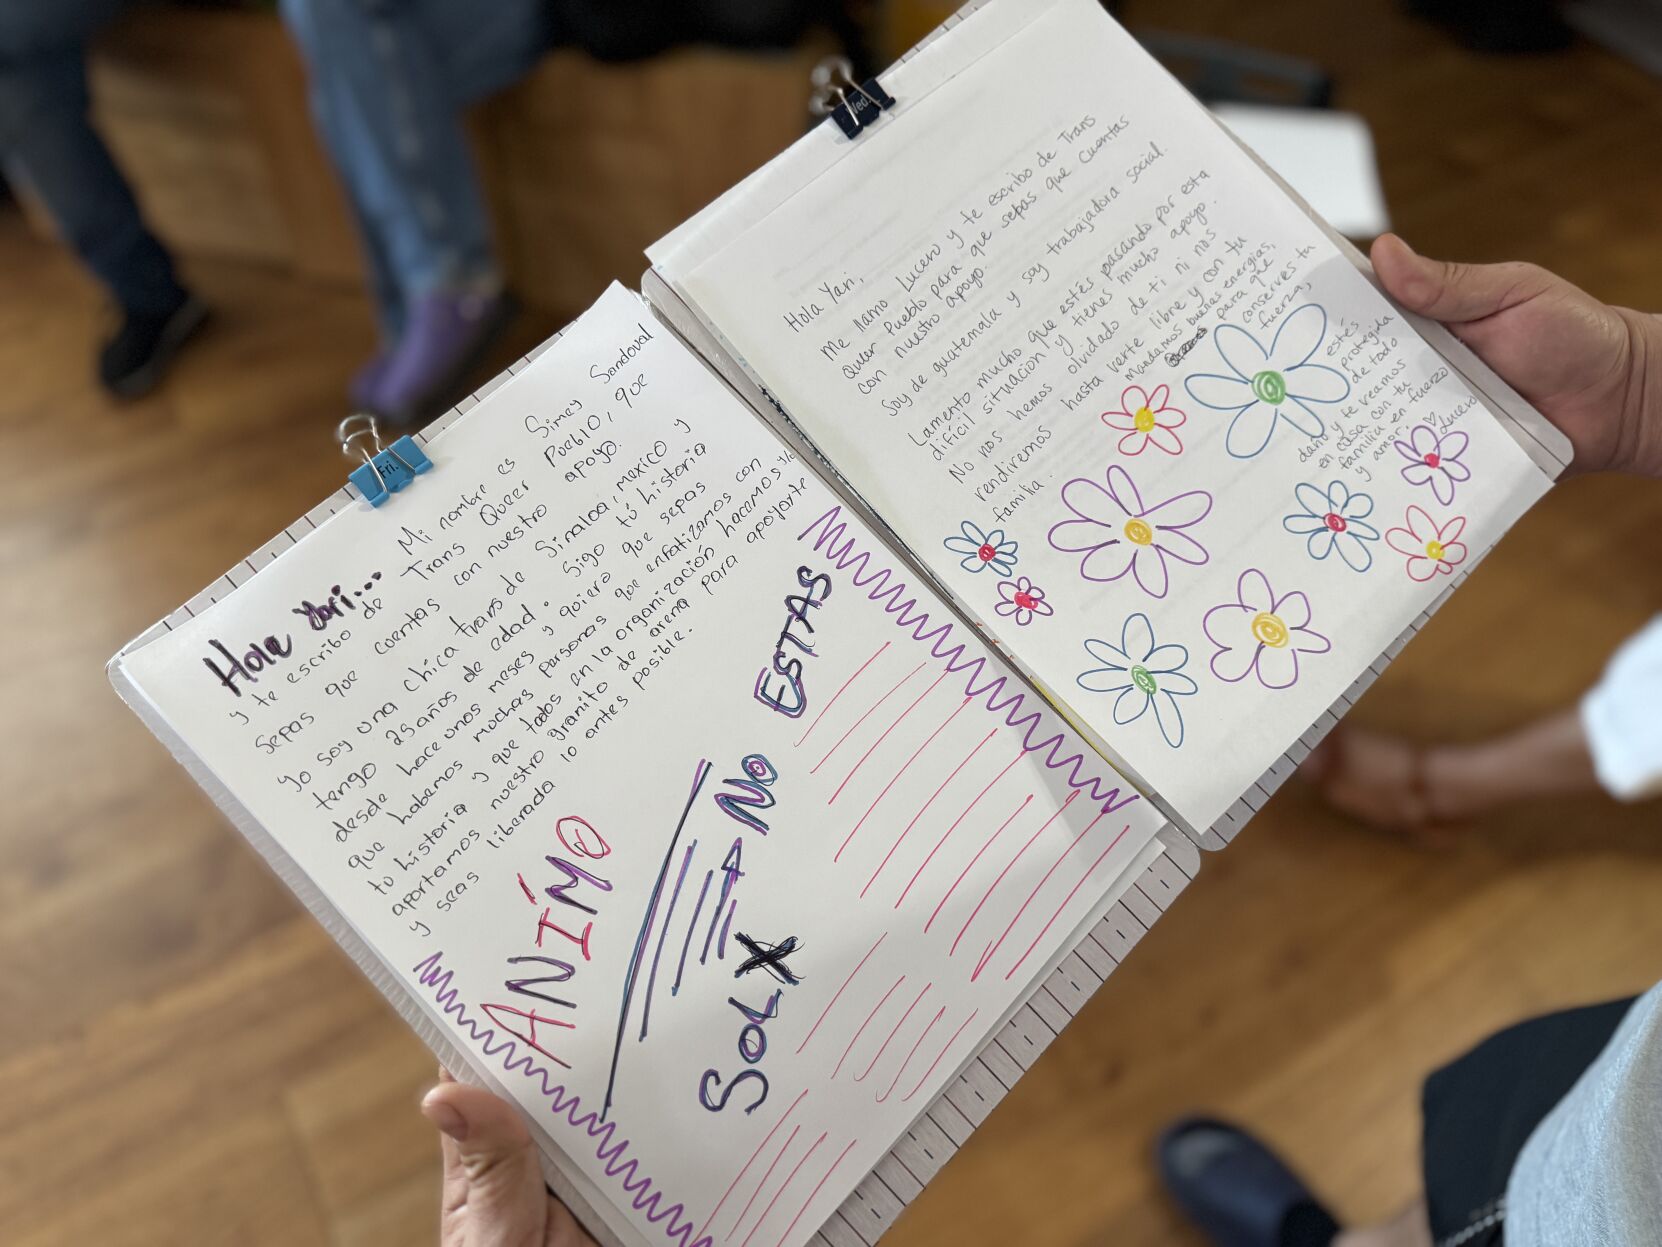 Fri.
Hola Yari... Mi nombre es Simey Sandoval
y te escribo de Trans Queer Pueblo, que
sepas que cuentas con nuestro apoyo.
Yo soy una chica trans de Sinaloa, mexico y
tengo 29 años de edad. Sigo tú historia
desde hace unos meses y quiero que sepas
que habemos muchas personas que enfatizamos con
tu historia y que todos en la organización hacemos y/o
aportamos nuestro granito de arena para apoyarte
y seas liberada lo antes posible.
ANÍMO
No ESTAS
SOLX
Wed.
Hola Yari,
Me llamo Lucero y te escribo de Trans
Queer Pueblo para que sepas que cuentas
con nuestro apoyo.
Soy de guatemala y soy trabajadora social.
Lamento mucho que estés pasando por esta
difícil situación y tienes mucho apoyo.
No nos hemos olvidado de ti ni nos
rendiremos hasta verte libre y con tu
familia. Mandamos buenas energias,
para que
conserves tu
fuerza,
estés
protegida
de todo
daño y te veamos
en casa con tu
familia en fuerza
y amor. ♡
Lucero